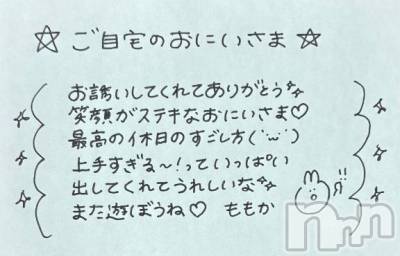 ☆ご自宅のおにいさま☆
お誘いしてくれてありがとう✨
笑顔がステキなおにいさま♡
最高の休日のすごし方(˙ω˙)
上手すぎる〜!っていっぱい
出してくれてうれしいな✨
また遊ぼうね♡ ももか